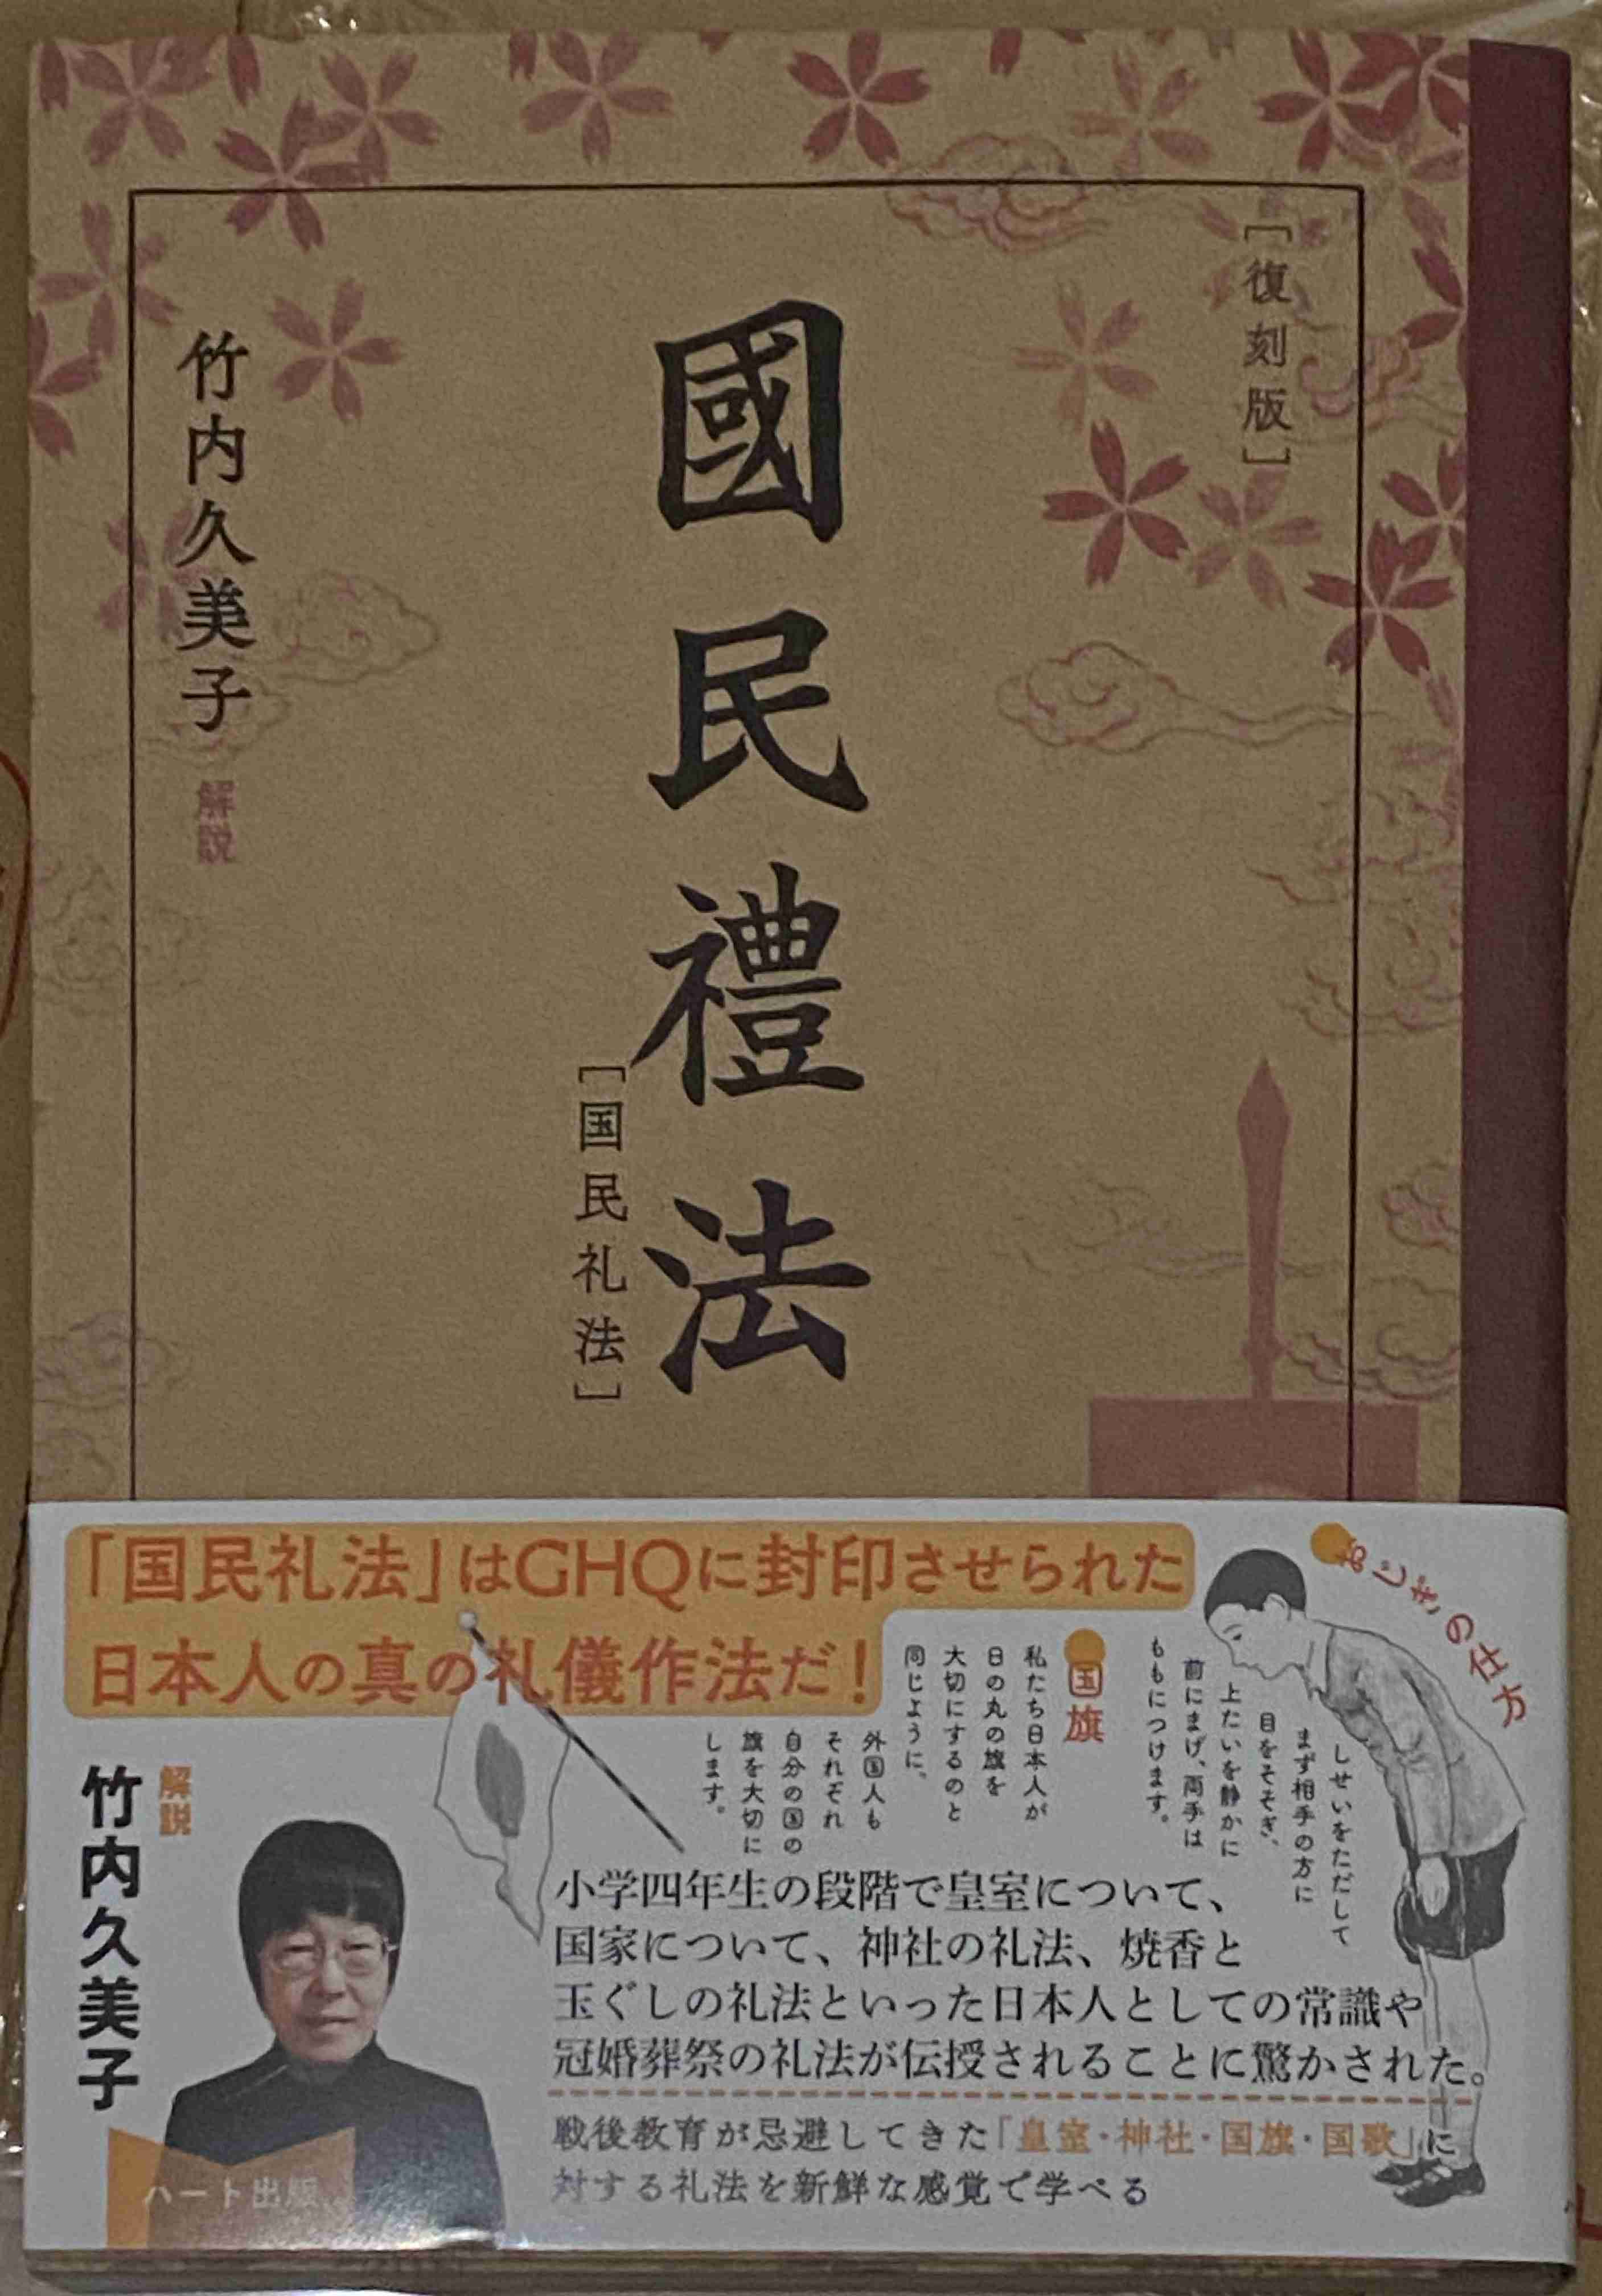 [復刻版]
國民禮法
[国民礼法]
竹内久美子 解説
「国民礼法」はGHQに封印させられた
日本人の真の礼儀作法だ!
おじぎの仕方
しせいをただして
まず相手の方に
目をそそぎ、
上たいを静かに
前にまげ、両手は
ももにつけます。
国旗
私たち日本人が
日の丸の旗を
大切にするのと
同じように、
外国人も
それぞれ
自分の国の
旗を大切に
します。
解説
竹内久美子
小学四年生の段階で皇室について、
国家について、神社の礼法、焼香と
玉ぐしの礼法といった日本人としての常識や
冠婚葬祭の礼法が伝授されることに驚かされた。
戦後教育が忌避してきた「皇室・神社・国旗・国歌」に
対する礼法を新鮮な感覚で学べる
ハート出版